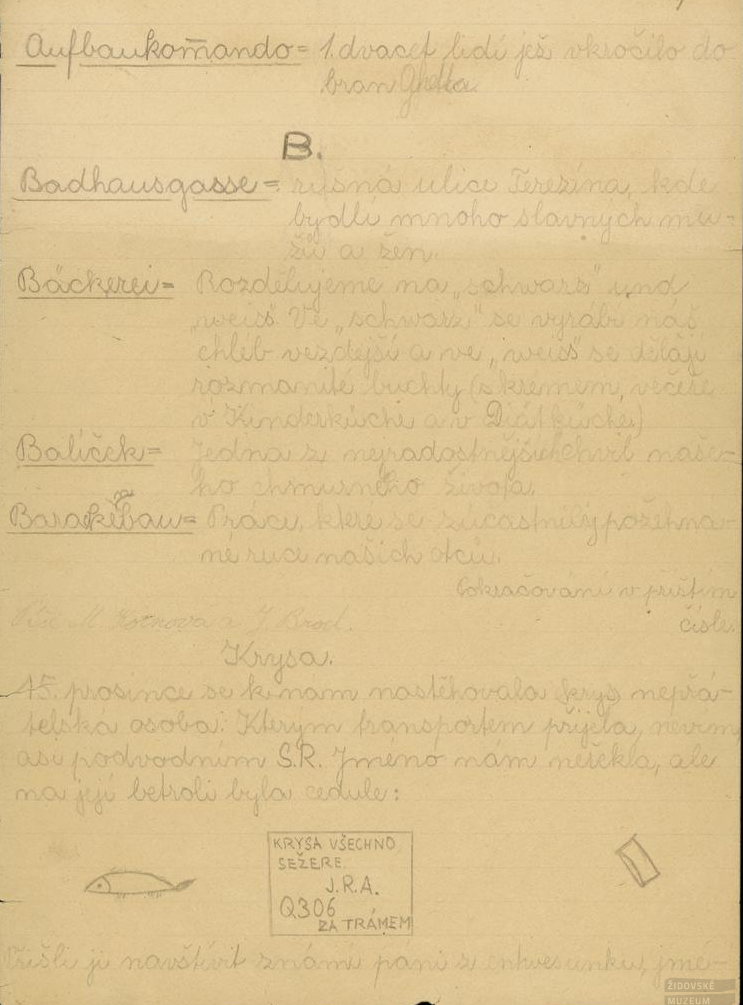 Aufbaukomando = 1. dvacet lidí jež vkročilo do
bran Ghetta.
B.
Badhausgasse = rušná ulice Terezína, kde
bydlí mnoho slavných mu-
žů a žen.
Bäckerei = Rozdělujeme na „schwarz" und
„weiss". Ve „schwarz" se vyrábí náš
chléb vezdejší a ve „weiss" se dělají
rozmanité buchty (s kremem, večeře
v Kinderküche a v Diätküche)
Balíček = Jedna z nejradostnějších chvil naše-
ho chmurného života.
Barakenbau = Práce, které se zúčastnily požehna-
né ruce našich otců.
Pokračování v příštím
čísle.
Píše M. a J. Brod.
Krysa.
15. prosince se k nám nastěhovala krys nepřá-
telská osoba. Kterým transportem přijela, nevím
asi podvodním S.R. Jméno nám neřekla, ale
na její betroli byla cedule:
KRYSA VŠECHNO
SEŽERE.
J.R.A.
Q306
ZA TRÁMEM
Přišli ji navštívit známí pani z jmé-
ŽIDOVSKÉ
MUZEUM